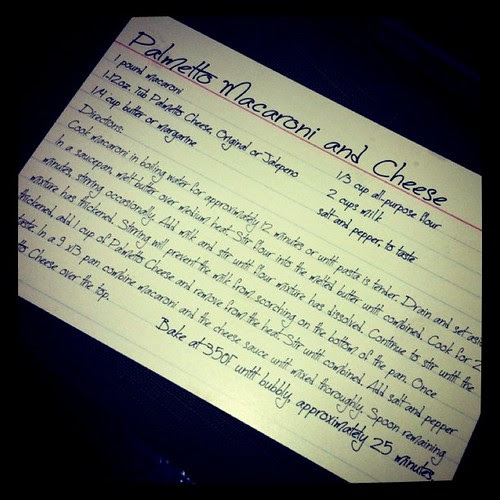 Palmetto Macaroni and Cheese
1 pound macaroni
1-12oz. Tub Palmetto Cheese Original or Jalepeno
1/4 cup butter or margarine
1/3 cup all-purpose flour
2 cups milk
salt and pepper to taste
Directions:
Cook macaroni in boiling water for approximately 12 minutes or until pasta is tender. Drain and set aside.
In a saucepan, melt butter over medium heat. Stir flour into the melted butter until combined. Cook for 2
minutes, stirring occasionally. Add milk and stir until flour mixture has dissolved. Continue to stir until the
mixture has thickened. Stirring will prevent the milk from scorching on the bottom of the pan. Once
thickened, add 1 cup of Palmetto Cheese and remove from the heat. Stir until combined. Add salt and pepper
taste. In a 9 x13, pan combine macaroni and the cheese sauce until mixed thoroughly. Spoon remaining
to Cheese over the top.
Bake at 350F until bubbly, approximately 25 minutes.